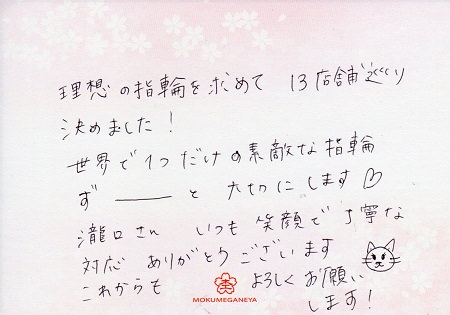 理想の指輪を求めて 13店舗巡り
決めました!
世界で1つだけの素敵な指輪
ず――と 大切にします♡
瀧口さん いつも 笑顔で 丁寧な
対応 ありがとうございます
これからも よろしくお願い
します!
MOKUMEGANEYA